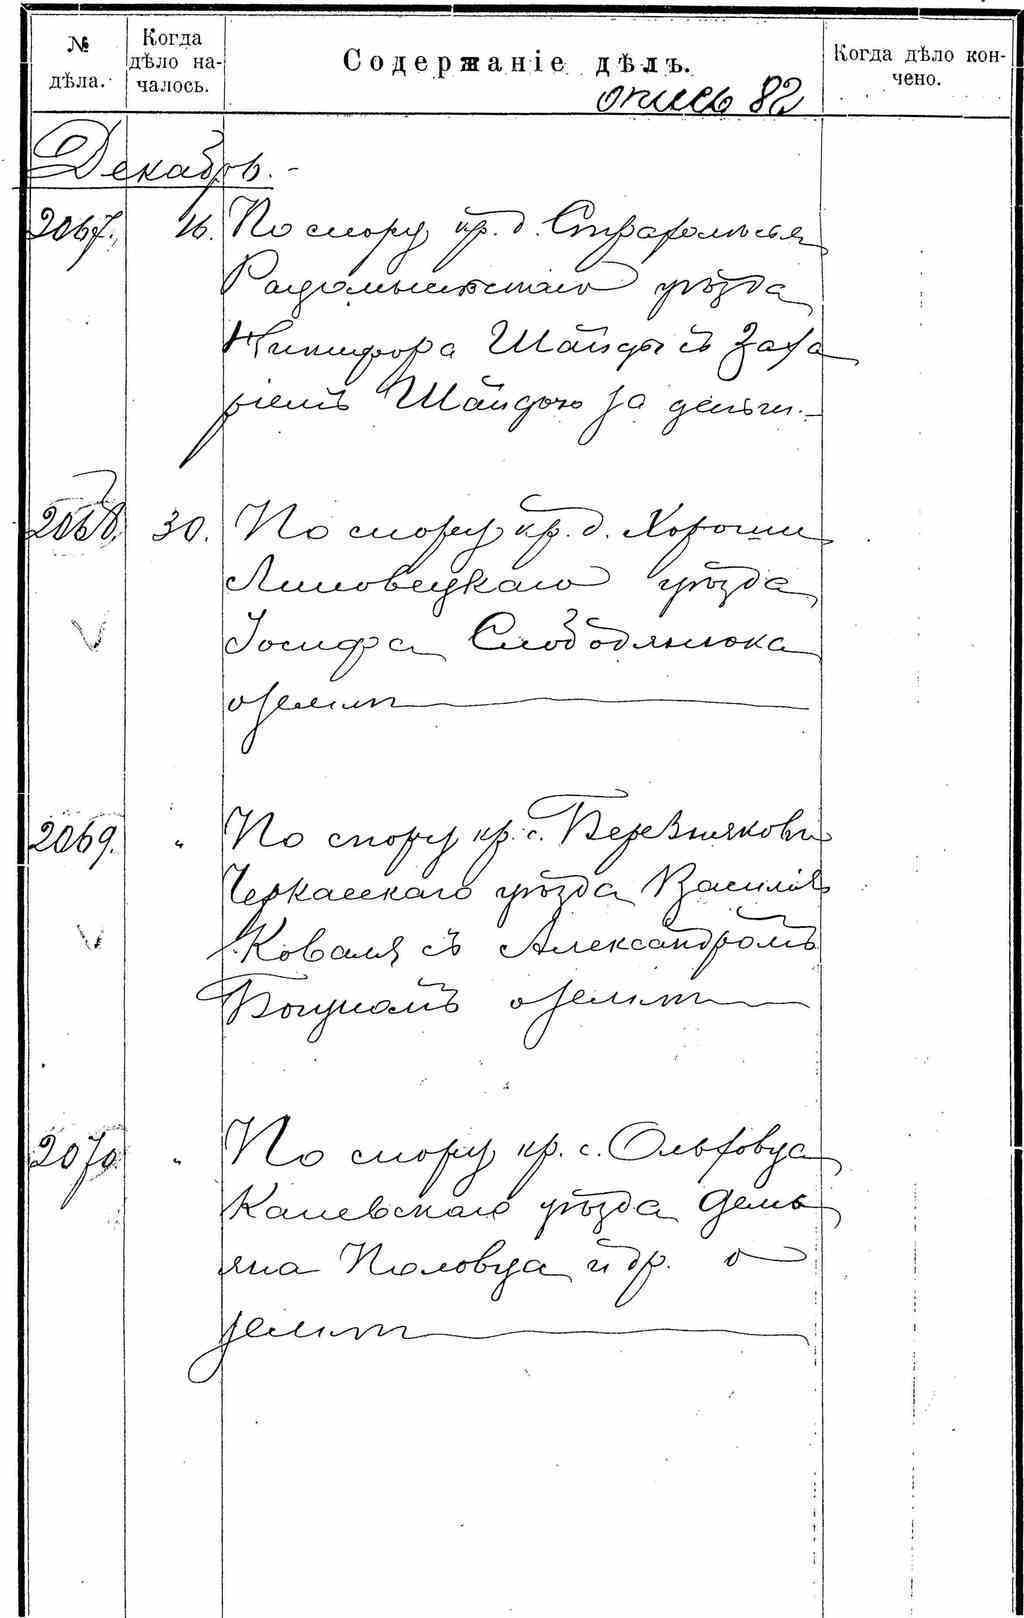 № дѣла.
Когда дѣло на-
чалось.
Содержаніе дѣлъ.
Когда дѣло кон-
чено.
опись 82
Декабрь.
2067. 16. По спору кр. д.
Радомысльскаго уѣзда
Никифора Шайды съ Заха
ріемъ Шайдою за деньги.
2068. 30. По спору кр. д. Хороши
Липовецкаго уѣзда
Іосифа Слободянюка
о землѣ
2069. " По спору кр. с. Березняковъ
Черкасскаго уѣзда Василія
Коваля съ Александромъ
Богуномъ о землѣ
2070. " По спору кр. с. Ольховца
Каневскаго уѣзда Демь
яна Половца и др. о
землѣ